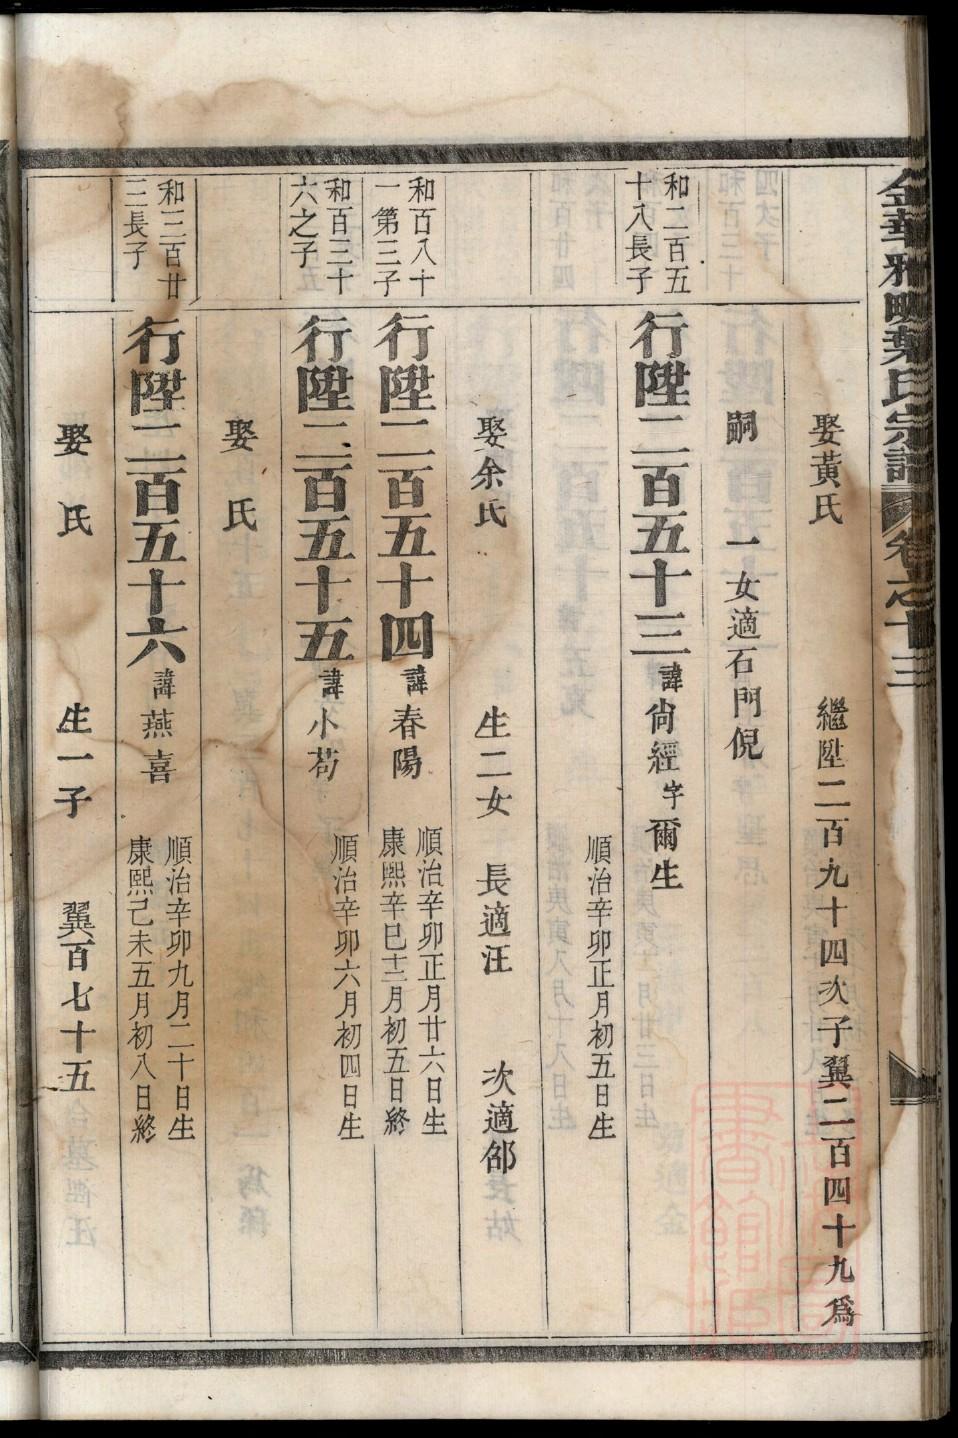 金華雅畈葉氏宗譜 卷之十三
娶黃氏 繼陞二百九十四次子翼二百四十九爲
嗣 一女適石門倪
和二百五十八長子
行陞二百五十三 諱尙經 字爾生
順治辛卯正月初五日生
娶余氏 生二女 長適汪 次適邰
和百八十一第三子
行陞二百五十四 諱春陽 順治辛卯正月廿六日生
康熙辛巳十二月初五日終
和百三十六之子
行陞二百五十五 諱小苟 順治辛卯六月初四日生
娶 氏
和三百廿三長子
行陞二百五十六 諱燕喜 順治辛卯九月二十日生
康熙己未五月初八日終
娶 氏 生一子 翼百七十五